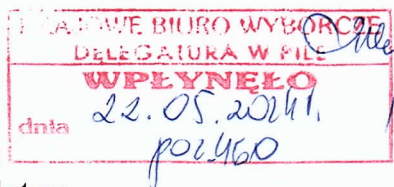 KRAJOWE BIURO WYBORCZE
DELEGATURA W PILE
WPŁYNĘŁO
dnia 22.05.2024r.
poz.460